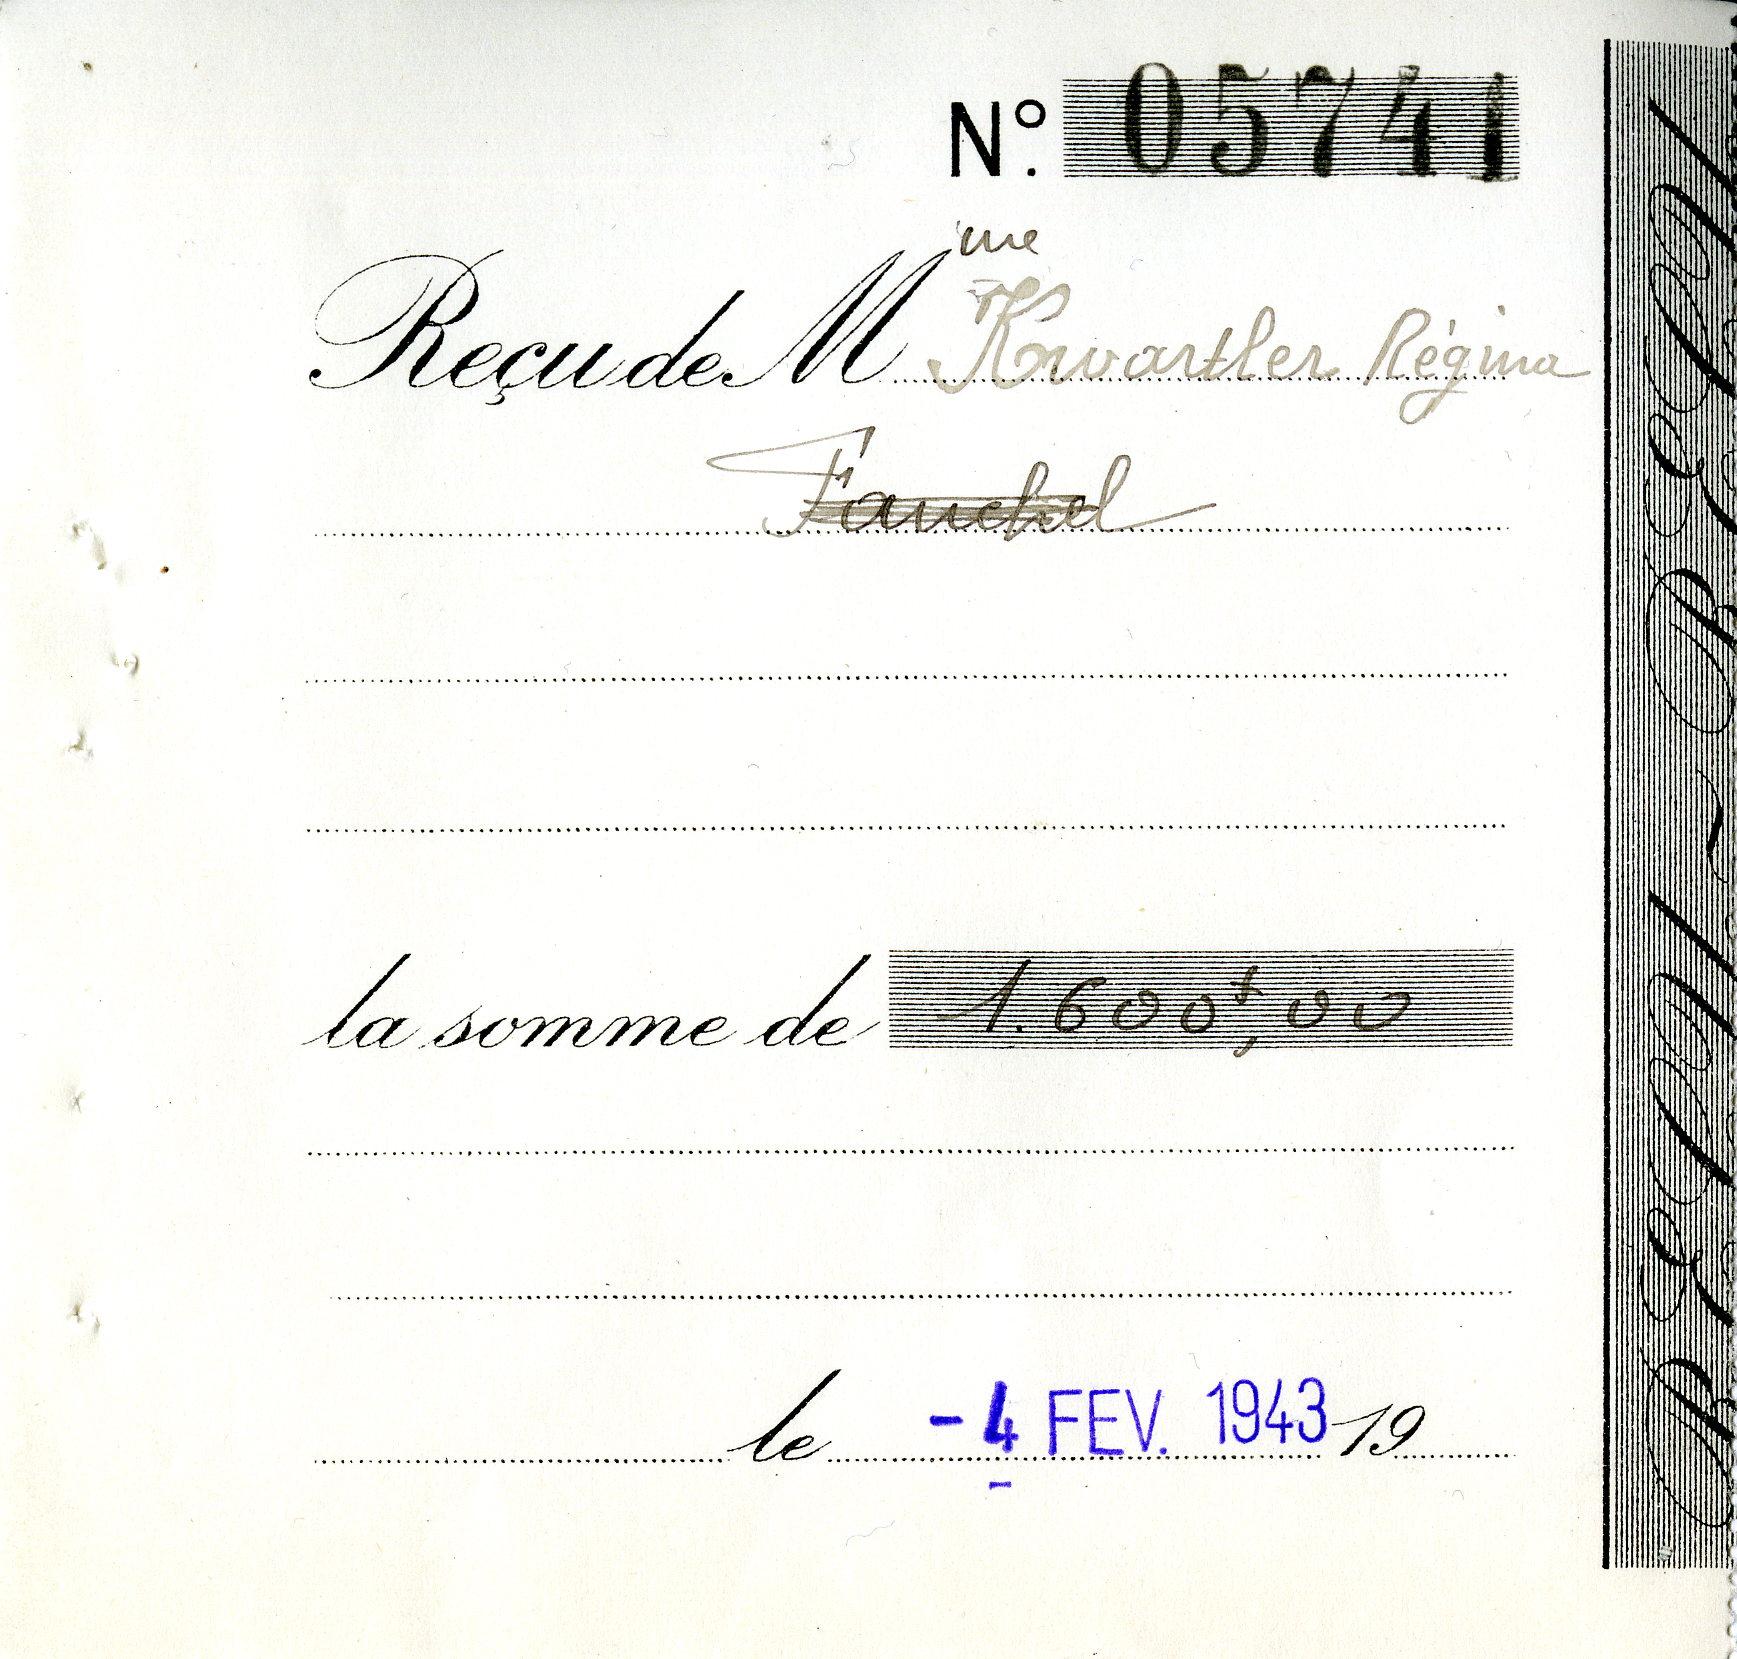 N° 05741
Reçu de Mme Kwartler Régina
Fauchel
la somme de 1.600f,00
le -4 FEV. 1943 19
REÇU - REÇU